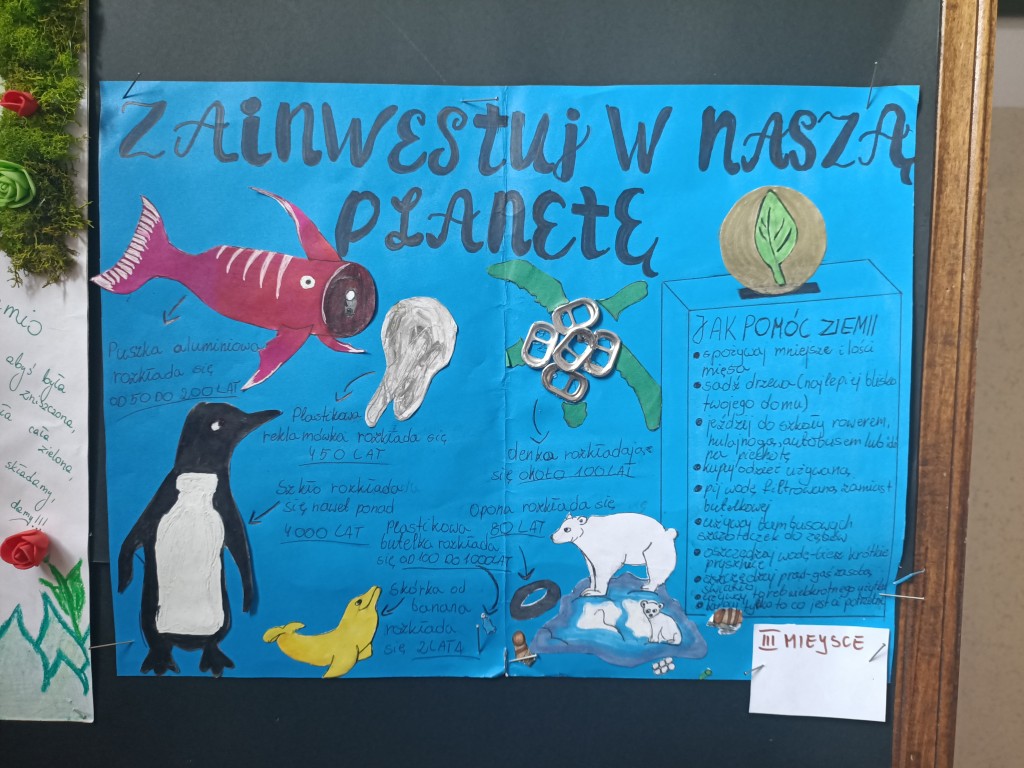 ZAINWESTUJ W NASZĄ
PLANETĘ
Puszka aluminiowa
rozkłada się
OD 50 DO 200 LAT
Plastikowa
reklamówka rozkłada się
450 LAT
Szkło rozkłada
się nawet ponad
4000 LAT
Plastikowa
butelka rozkłada
się OD 100 DO 1000 LAT
Skórka od
banana
rozkłada
się 2 LATA
denka rozkładają
się około 100 LAT
Opona rozkłada się
80 LAT
JAK POMÓC ZIEMI
• spożywaj mniejsze ilości
mięsa
• sadź drzewa (najlepiej blisko
twojego domu)
• jeździj do szkoły rowerem,
hulajnogą, autobusem lub idź
na piechotę
• kupuj odzież używaną
• pij wodę filtrowaną zamiast
butelkowej
• używaj bambusowych
szczoteczek do zębów
• oszczędzaj wodę-bierz krótkie
prysznice!
• oszczędzaj prąd-gaś
światło
III MIEJSCE
abyś była
zniszczona,
cała
zielona,
składamy,
damy!!!